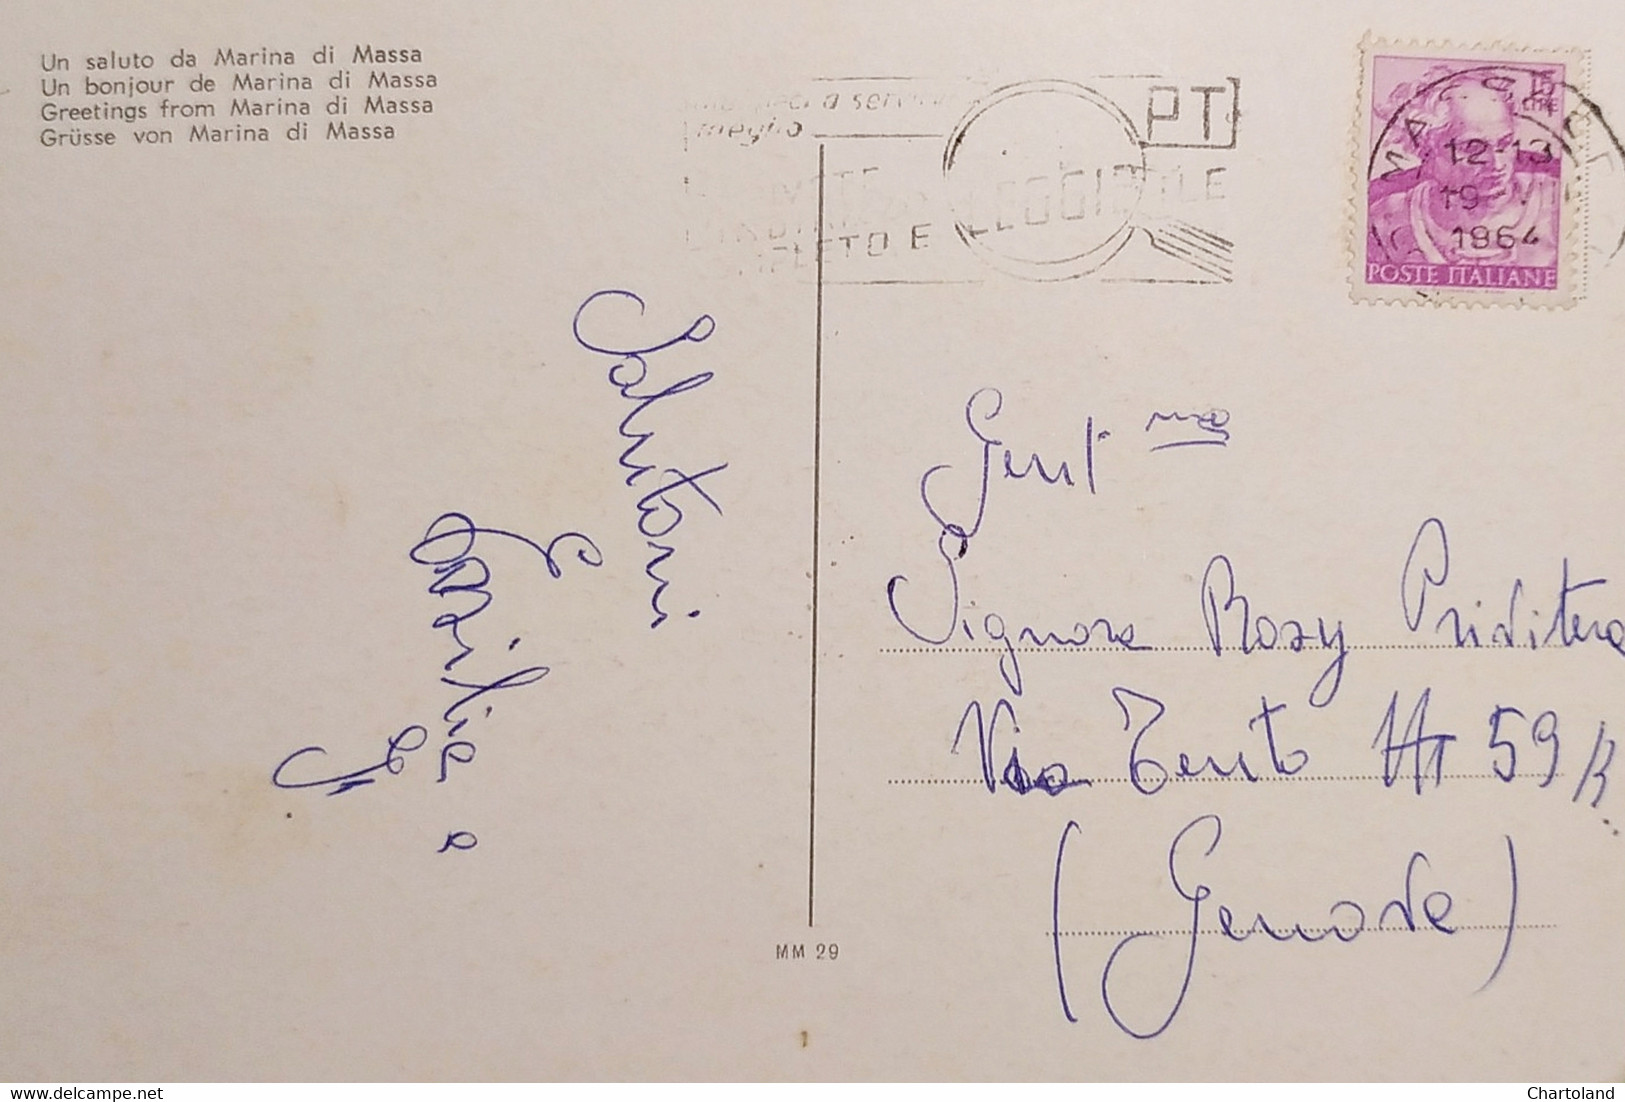 Un saluto da Marina di Massa
Un bonjour de Marina di Massa
Greetings from Marina di Massa
Grüsse von Marina di Massa
a servirvi
meglio
PT
E LEGGIBILE
15
LIRE
MASSA
12-13
19-VIII
1964
POSTE ITALIANE
Salutoni
Emilia
Gent.ma
Signora Rosy Privitera
Via Trento 59 R
(Genova)
MM 29
Chartoland